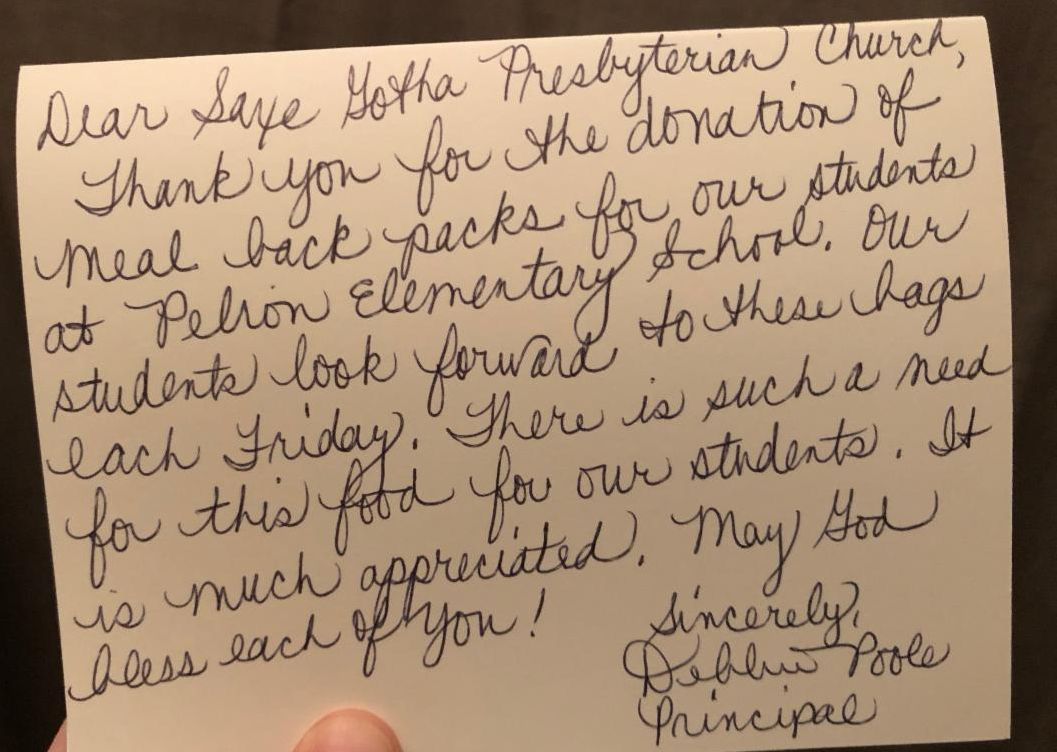 Dear Saxe Gotha Presbyterian Church,
Thank you for the donation of
meal back packs for our students
at Pelion Elementary School. Our
students look forward to these bags
each Friday. There is such a need
for this food for our students. It
is much appreciated. May God
bless each of you!
Sincerely,
Debbie Poole
Principal